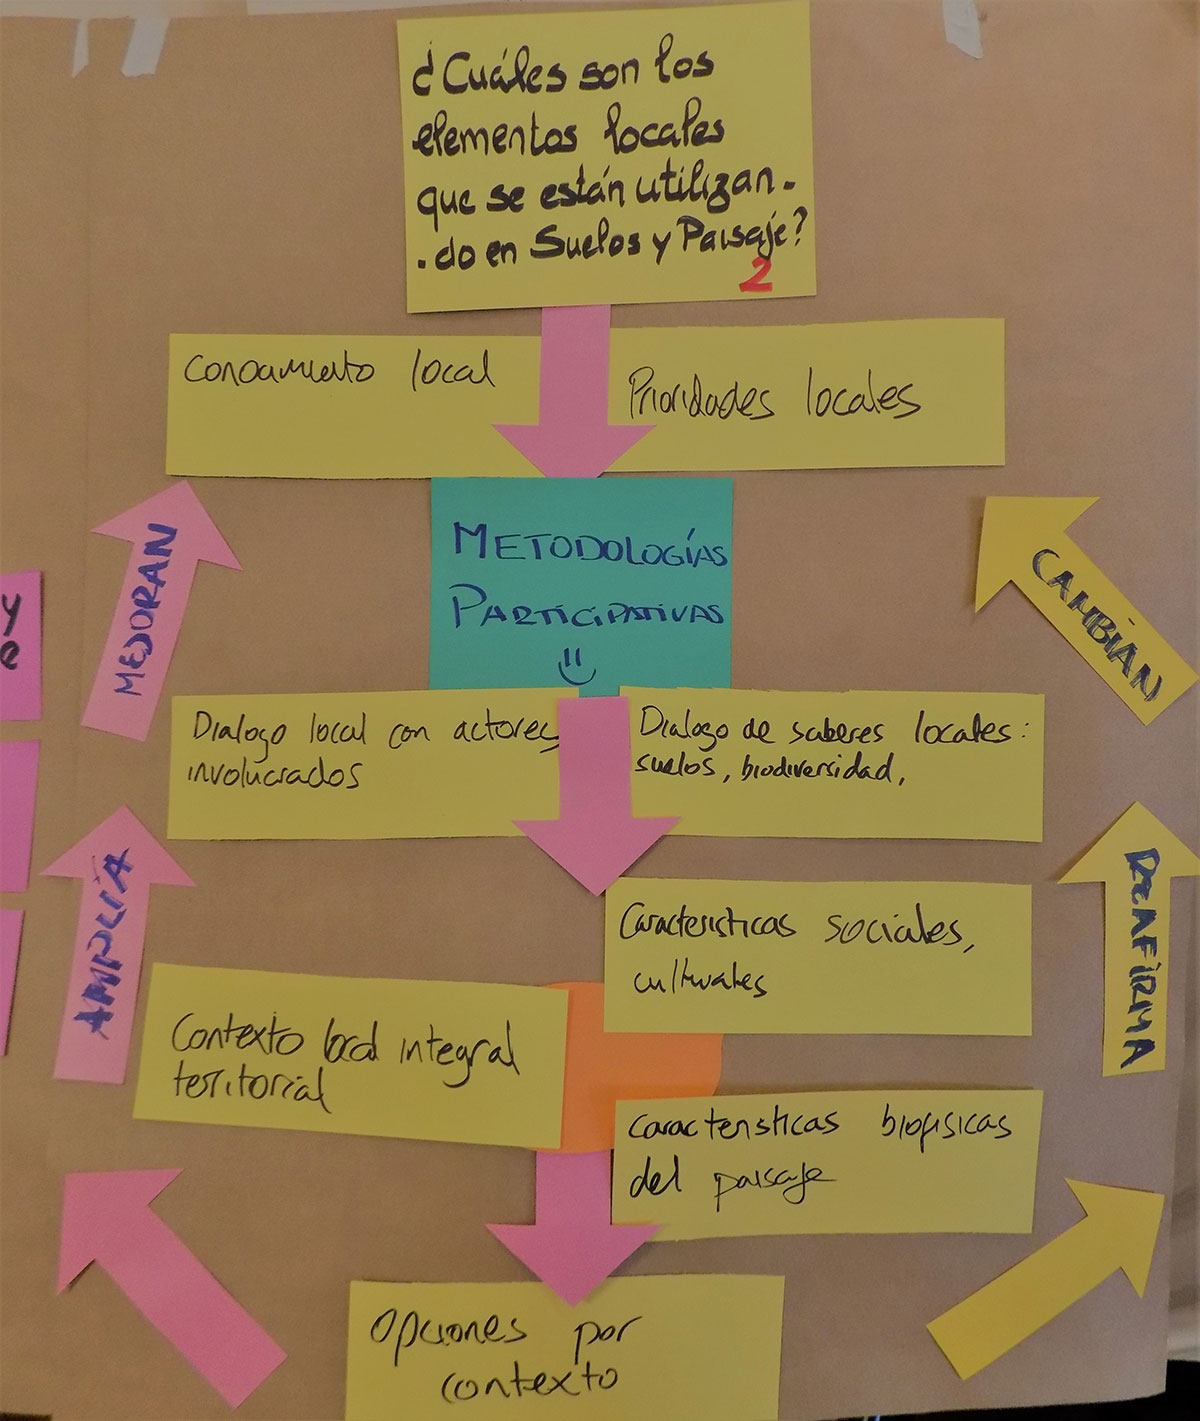 ¿Cuáles son los
elementos locales
que se están utilizan-
-do en Suelos y Paisaje?
2
Conocimiento local
Prioridades locales
METODOLOGÍAS
PARTICIPATIVAS
MEJORAN
CAMBIAN
y
e
Dialogo local con actores
involucrados
Dialogo de saberes locales:
suelos, biodiversidad,
AMPLÍA
REAFIRMA
Caracteristicas sociales,
culturales
Contexto local integral
territorial
Caracteristicas biofisicas
del paisaje
Opciones por
contexto